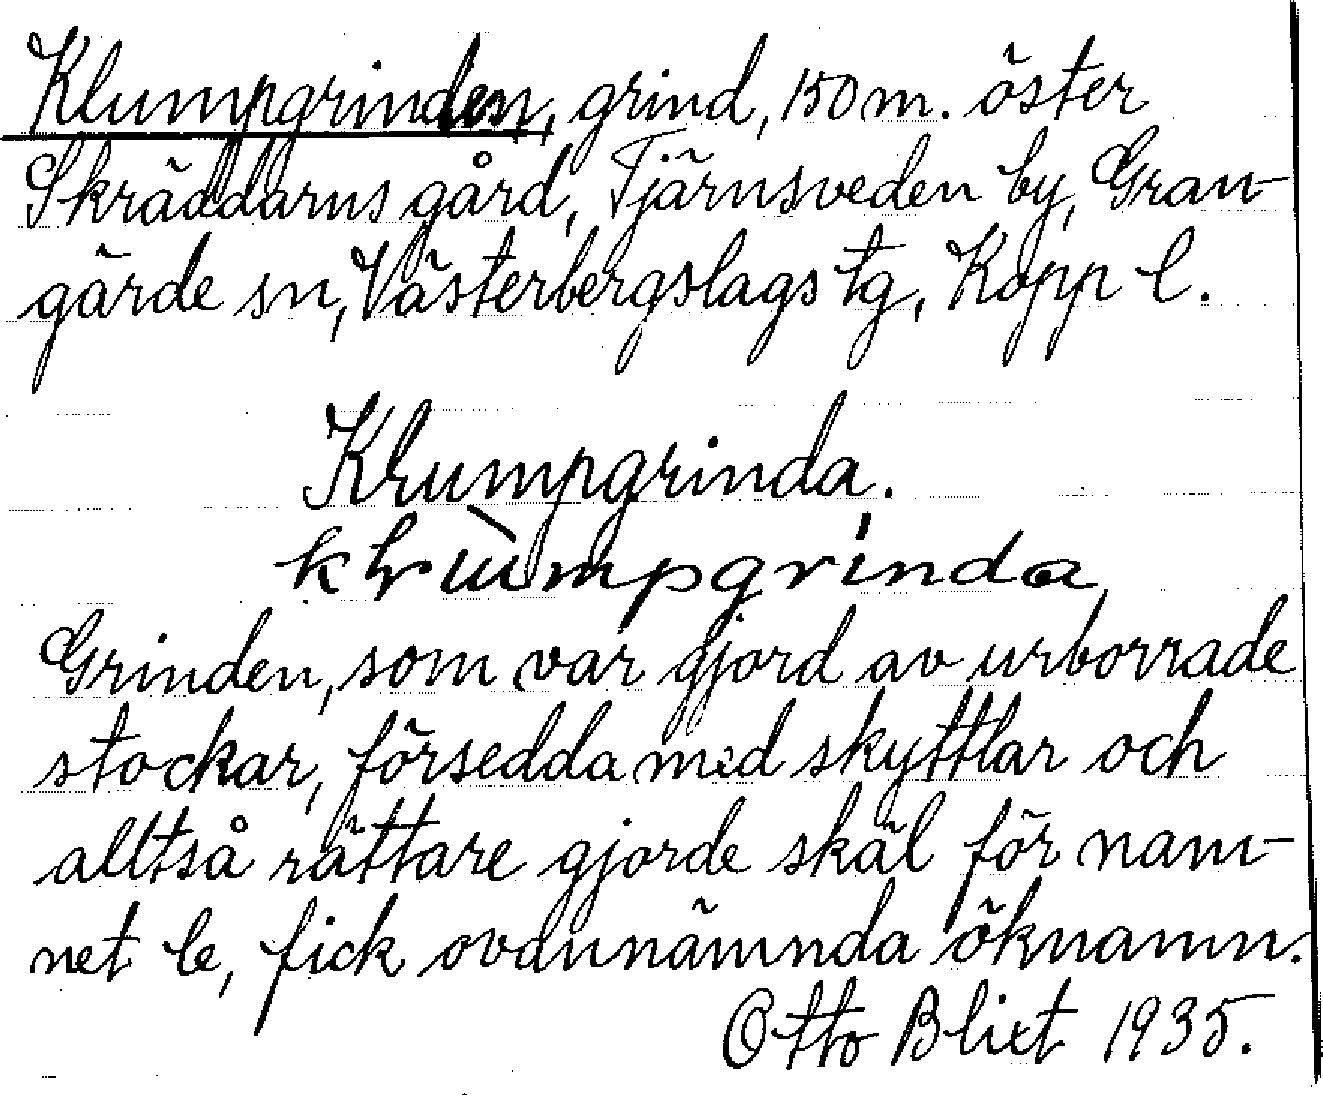 Klumpgrinden, grind, 150 m. öster
Skräddarns gård, Tjärnsveden by, Gran-
gärde sn, Västerbergslags tg, Kopp l.
Klumpgrinda.
Grinden, som var gjord av urborrade
stockar, försedda med skyttlar och
alltså rättare gjorde skäl för nam-
net le, fick ovannämnda öknamn.
Otto Blixt 1935.